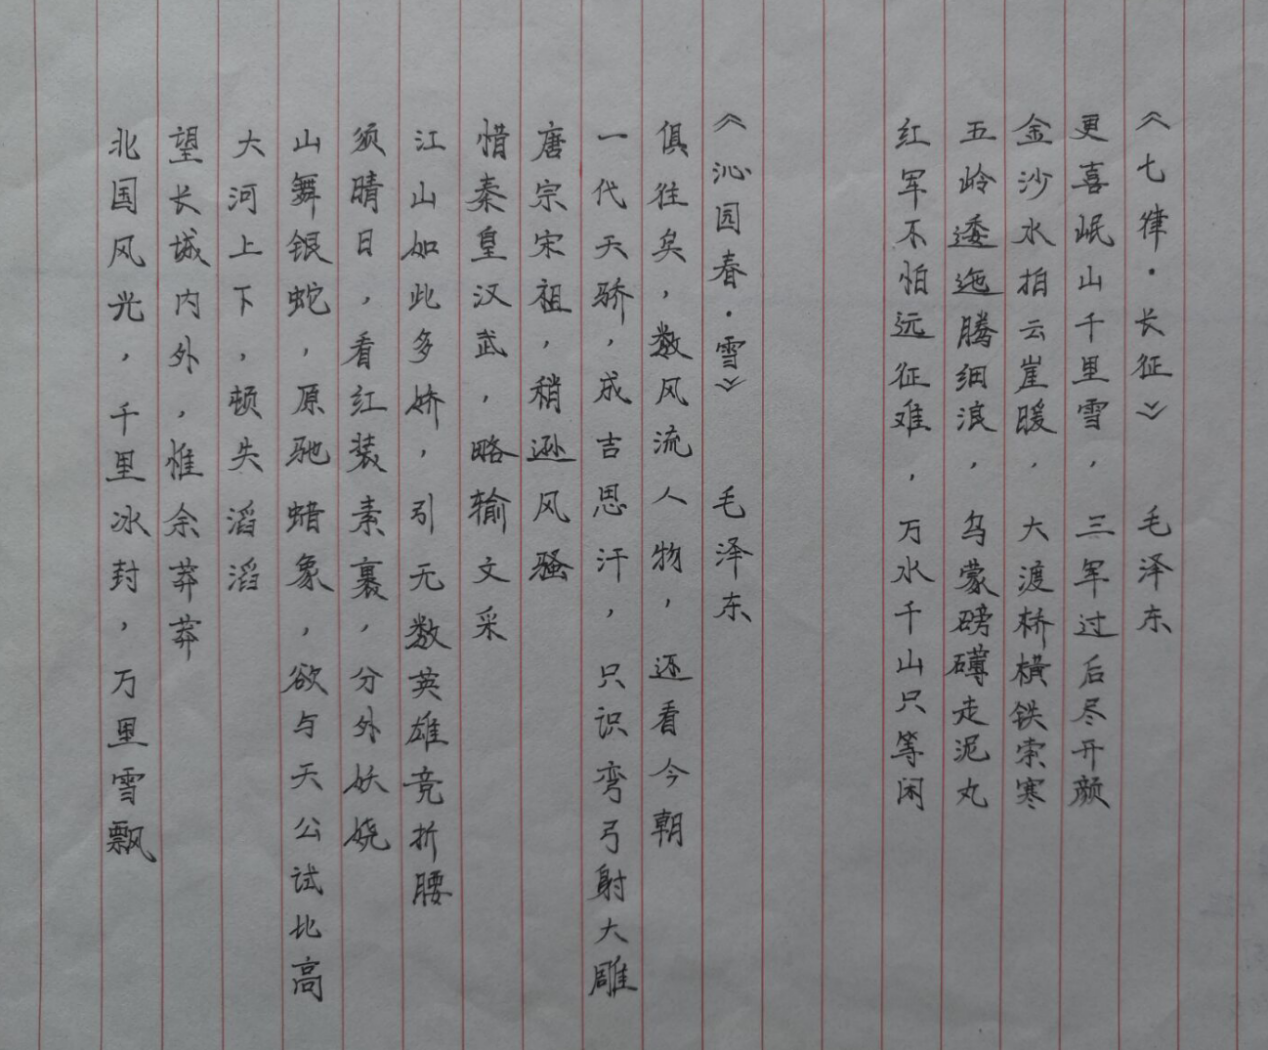 北国风光，千里冰封，万里雪飘
望长城内外，惟余莽莽
大河上下，顿失滔滔
山舞银蛇，原驰蜡象，欲与天公试比高
须晴日，看红装素裹，分外妖娆
江山如此多娇，引无数英雄竞折腰
惜秦皇汉武，略输文采
唐宗宋祖，稍逊风骚
一代天骄，成吉思汗，只识弯弓射大雕
俱往矣，数风流人物，还看今朝
《沁园春·雪》 毛泽东
红军不怕远征难，万水千山只等闲
五岭逶迤腾细浪，乌蒙磅礴走泥丸
金沙水拍云崖暖，大渡桥横铁索寒
更喜岷山千里雪，三军过后尽开颜
《七律·长征》 毛泽东